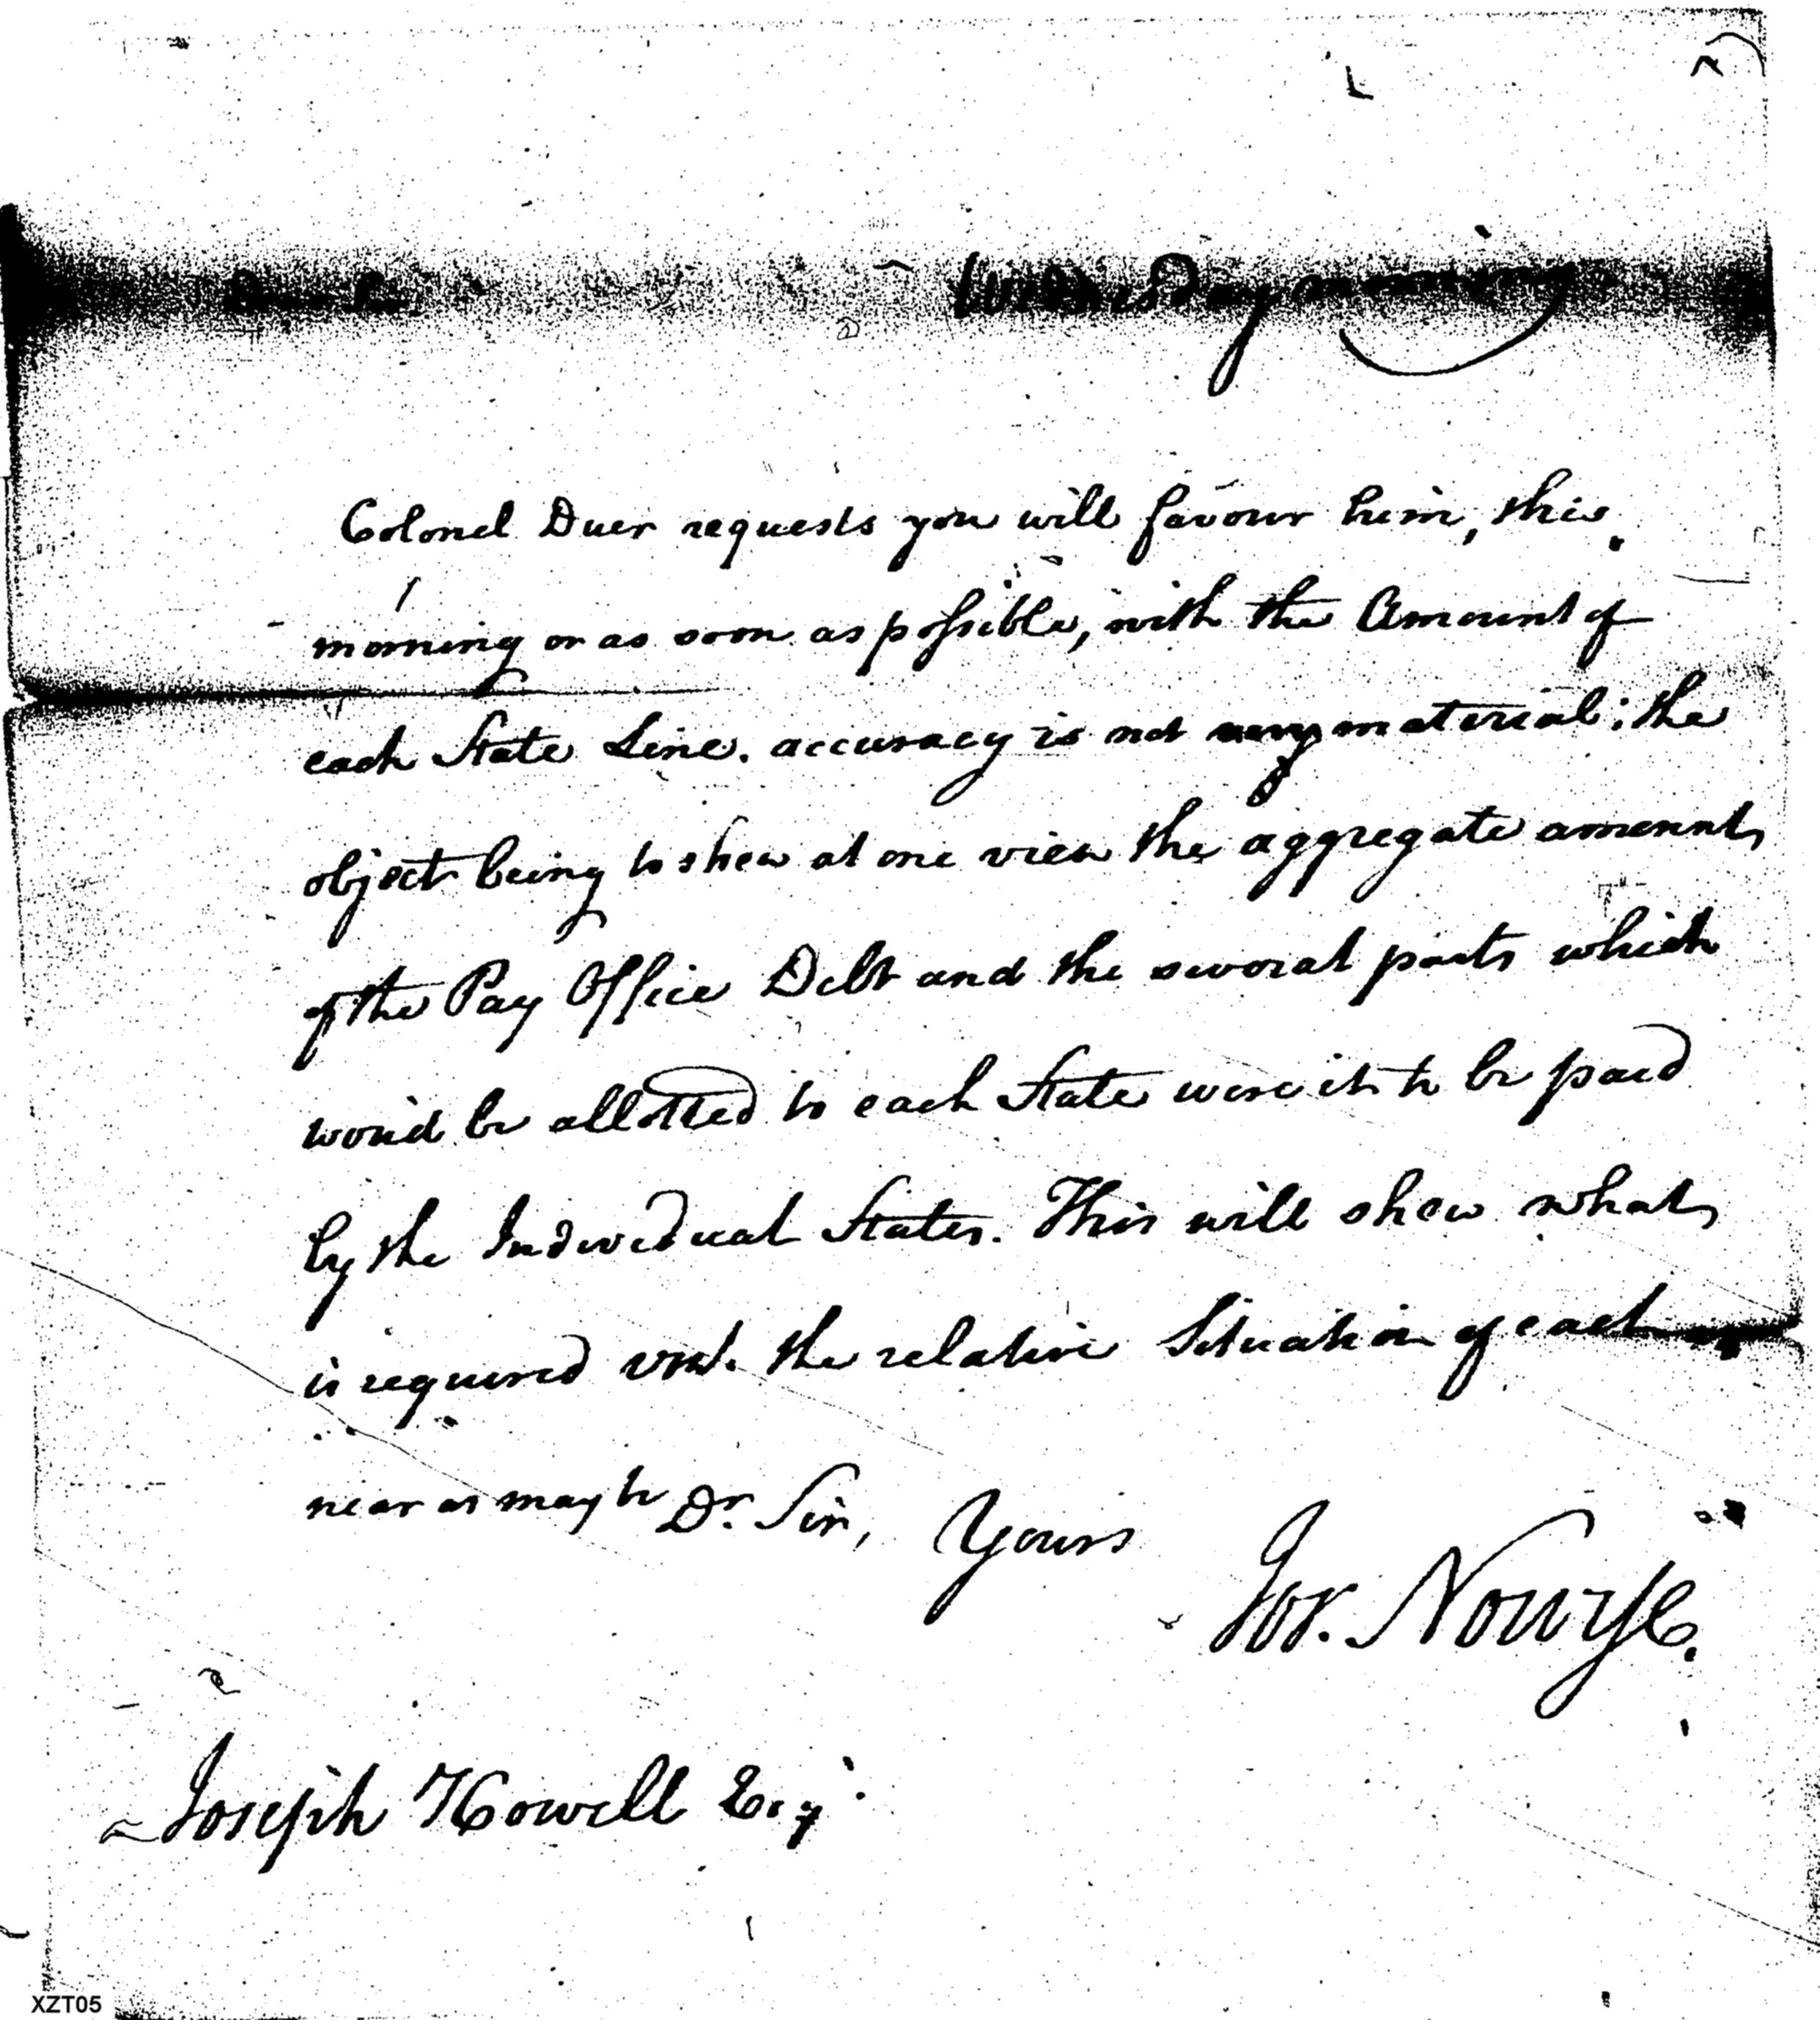 Dear Sir, Wednesday morning
Colonel Duer requests you will favour him, this
morning or as soon as possible, with the Amount of
each State Line. accuracy is not very material; the
object being to shew at one view the aggregate amount
of the Pay Office Debt and the several parts which
wou'd be allotted to each State were it to be paid
by the Individual States. This will shew what
is required vizt. the relative Situation of each as
near as may be Dr. Sir, Yours
Jos. Nourse.
Joseph Howell Esqr.
XZT05